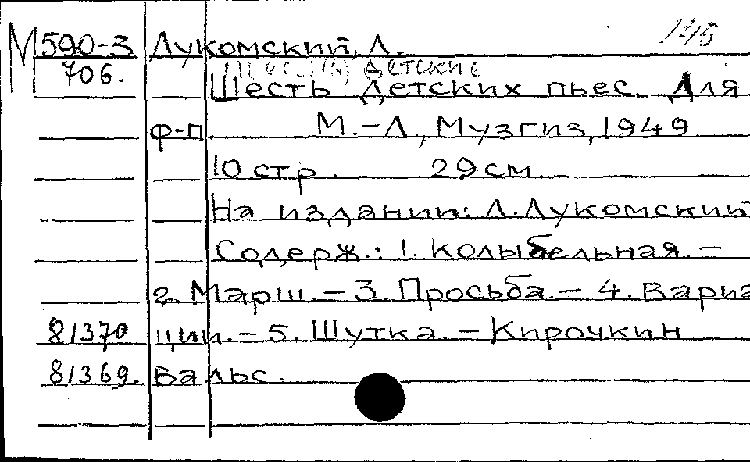 М590-3 Лукомский, Л. 146
706. Пьесы детские
Шесть детских пьес. Для
ф-п. М.-Л., Музгиз, 1949
10 стр. 29 см.
На издании: Л. Лукомский
Содерж.: 1. Колыбельная. -
2. Марш. - 3. Просьба. - 4. Вариа
81370 ции. - 5. Шутка. - Кирочкин
81369. вальс.